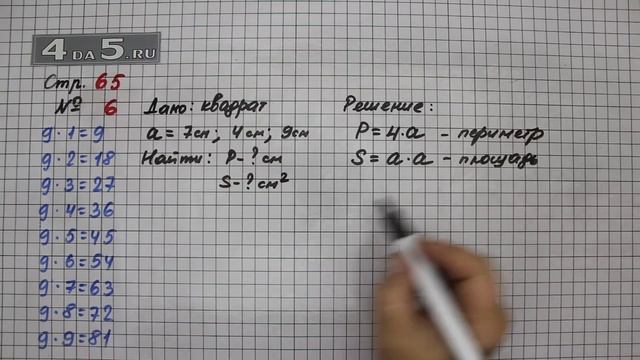 4 DA 5.RU
Стр. 65
№ 6
9·1=9
9·2=18
9·3=27
9·4=36
9·5=45
9·6=54
9·7=63
9·8=72
9·9=81
Дано: квадрат
a=7см; 4см; 9см
Найти: P-?см
S-?см²
Решение:
P=4·a - периметр
S=a·a - площадь